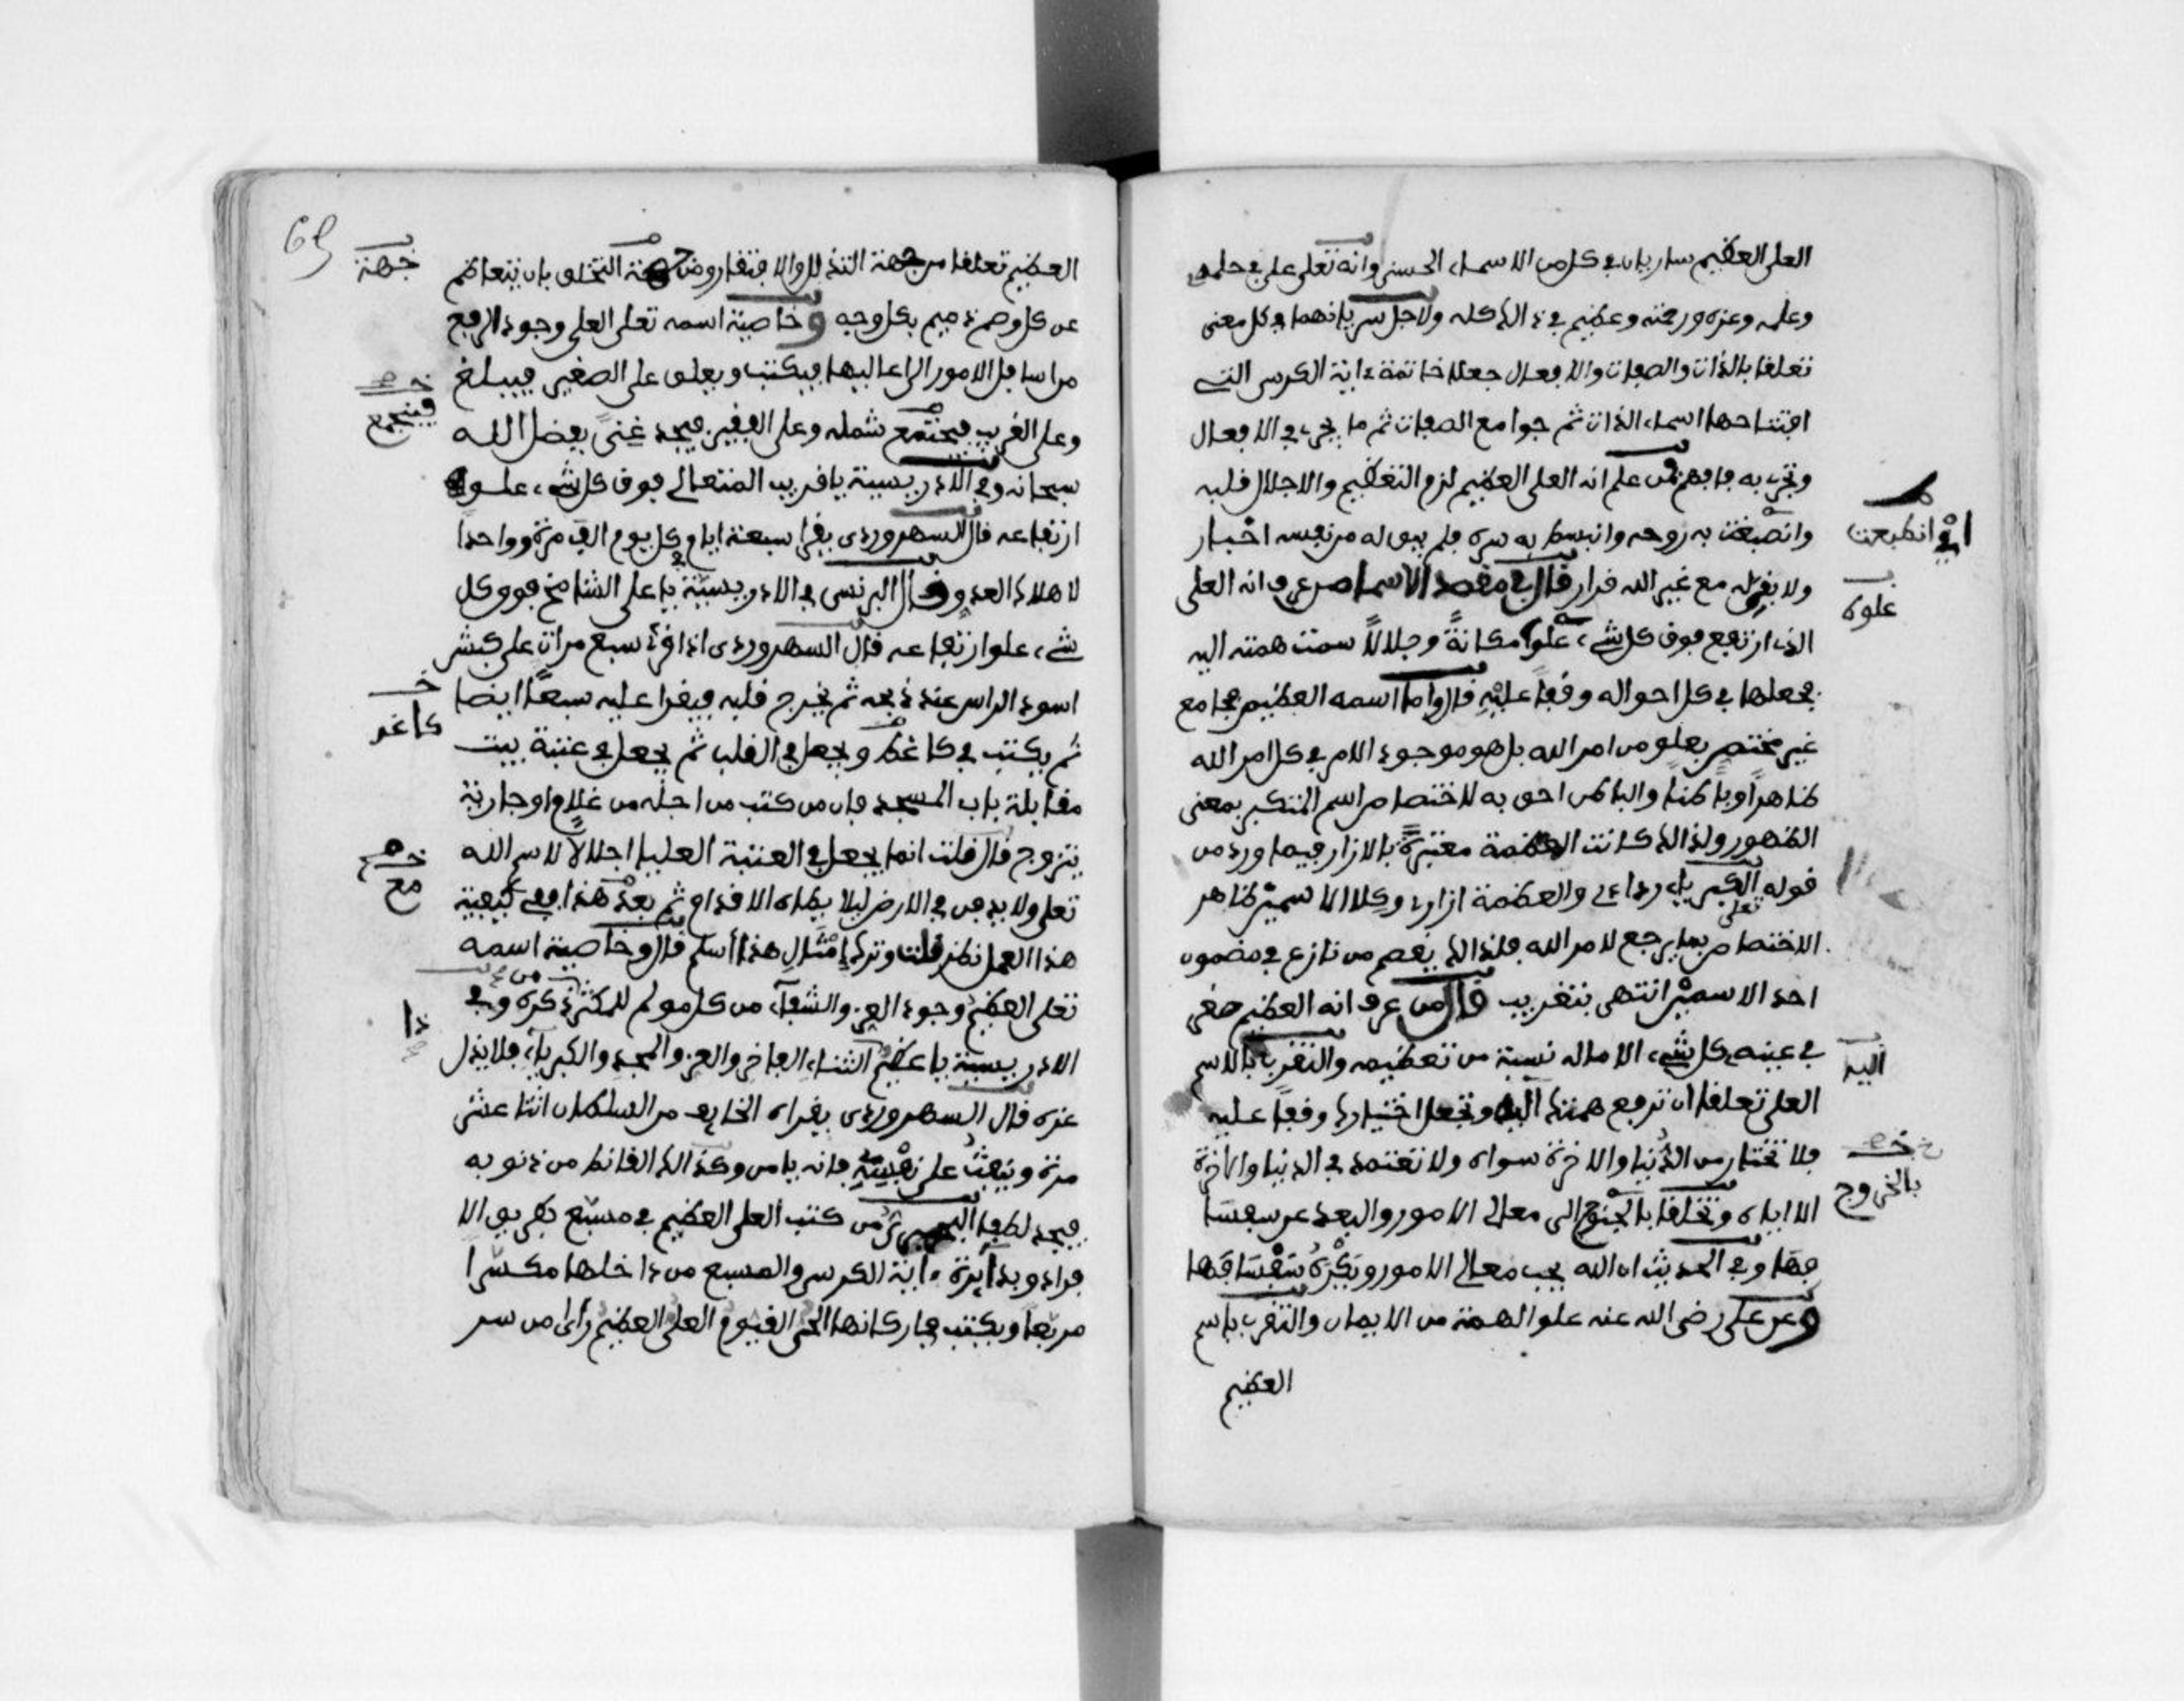 العلي العظيم ساريان في كل من الاسماء الحسنى وانه تعلى علي في حلمه
وعلمه وعزه ورحمته وعظيم في ذالك كله ولاجل سريانهما في كل معنى
تعلقا بالذات والصفات والافعال جعلا خاتمة ءاية الكرسي التي
افتتاحها اسماء الذات ثم جوامع الصفات ثم ما يجري في الافعال
وتجري به فافهم فمن علم انه العلي العظيم لزم التعظيم والاجلال قلبه
وانصبغت به روحه وانبسط به سره فلم يبق له من نفسه اختيار
اي انطبعت
ولا يقر له مع غير الله قرار قال في مقصد الاسما من عرف انه العلي
الذي ارتفع فوق كل شيء علوا مكانة وجلالا سمت همته اليه
علوه
فجعلها في كل احواله وقفا عليه قال واما اسمه العظيم فجامع
غير مختص بعلو من امر الله بل هو موجود الامر في كل امر الله
ظاهرا وباطنا والباطن احق به لاختصاص اسم المتكبر بمعنى
الظهور ولذالك كانت العظمة معبرة بالازار فيما ورد من
قوله تعلى الكبرياء رداءي والعظمة ازاري وكلا الاسمين ظاهر
الاختصاص بما يرجع لامر الله فلذالك يقصم من نازع في مضمون
احد الاسمين انتهى بتقريب قال من عرف انه العظيم صغر
في عينه كل شيء الا ما له نسبة من تعظيمه والتقرب بالاسم
العلي تعلقا ان ترفع همتك اليه وتجعل اختيارك وقفا عليه
اليه
فلا تختار من الدنيا والاخرة سواه ولا تعتمد في الدنيا والاخرة
الا اياه وتخلقا بالجنوح الى معالي الامور والبعد عن سفسا
بالخروج
فها وفي الحديث ان الله يحب معالي الامور ويكره سفسافها
وعن علي رضي الله عنه علو الهمة من الايمان والتقرب باسم
العظيم
69
العظيم تعلقا من جهة التذلل والافتقار ومن جهة التخلق بان يتعاظم
جهة
عن كل وصف ذميم بكل وجه وخاصية اسمه تعلى العلي وجود الرفع
من اسافل الامور الى اعاليها فيكتب ويعلق على الصغير فيبلغ
وعلى الغريب فيجتمع شمله وعلى الفقير فيجد غنى بفضل الله
فيتجمع
سبحانه وفي الادريسية يا قريب المتعالي فوق كل شيء علو
ارتفاعه قال السهروردي يقرا سبعة ايام في كل يوم الف مرة وواحدا
لاهلاك العدو وقال البرنسي في الادريسية يا علي الشامخ فوق كل
شيء علو ارتفاعه قال السهروردي اذا قرئ سبع مرات على كبش
اسود الراس عند ذبحه ثم يخرج قلبه فيقرا عليه سبعا ايضا
ثم يكتب في كاغد ويجعل في القلب ثم يجعل في عتبة بيت
كاغد
مقابلة باب المسجد فان من كتب من اجله من غلام او جارية
يتزوج قال قلت انما يجعل في العتبة العليا اجلالا لاسم الله
تعلى ولا يدفن في الارض ليلا يطاه الاقدام ثم بعد هذا ففي كيفية
مع
هذا العمل نظر قلت وترك امثال هذا اسلم قال وخاصية اسمه
تعلى العظيم وجود العز والشفاء من كل مولم للمكثر من ذكره وفي
الادريسية يا عظيم ذا الثناء الفاخر والعز والمجد والكبرياء فلا يذل
ذا
عزه قال السهروردي يقراه الخايف من السلطان اثنا عشر
مرة وينفث على نفسه فانه يامن وكذالك القانط من ذنوبه
فيجد لطفا من كتب العلي العظيم في مسبع بطريق الا
فراد وبدايرة ءاية الكرسي والمسبع من داخلها مكسرا
مربعا ويكتب في اركانها الحي القيوم العلي العظيم راى من سر